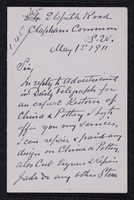 Elspeth Road
Clapham Common
S.W.
May 1st 1911
Sir,
In reply to Advertisment
in Daily Telegraph for
an expert Restorer of
China & Pottery, I beg to
offer you my services,
I can repair & paint any
design on China or Pottery,
also Cut Gems & repair
Jade or any other Stone